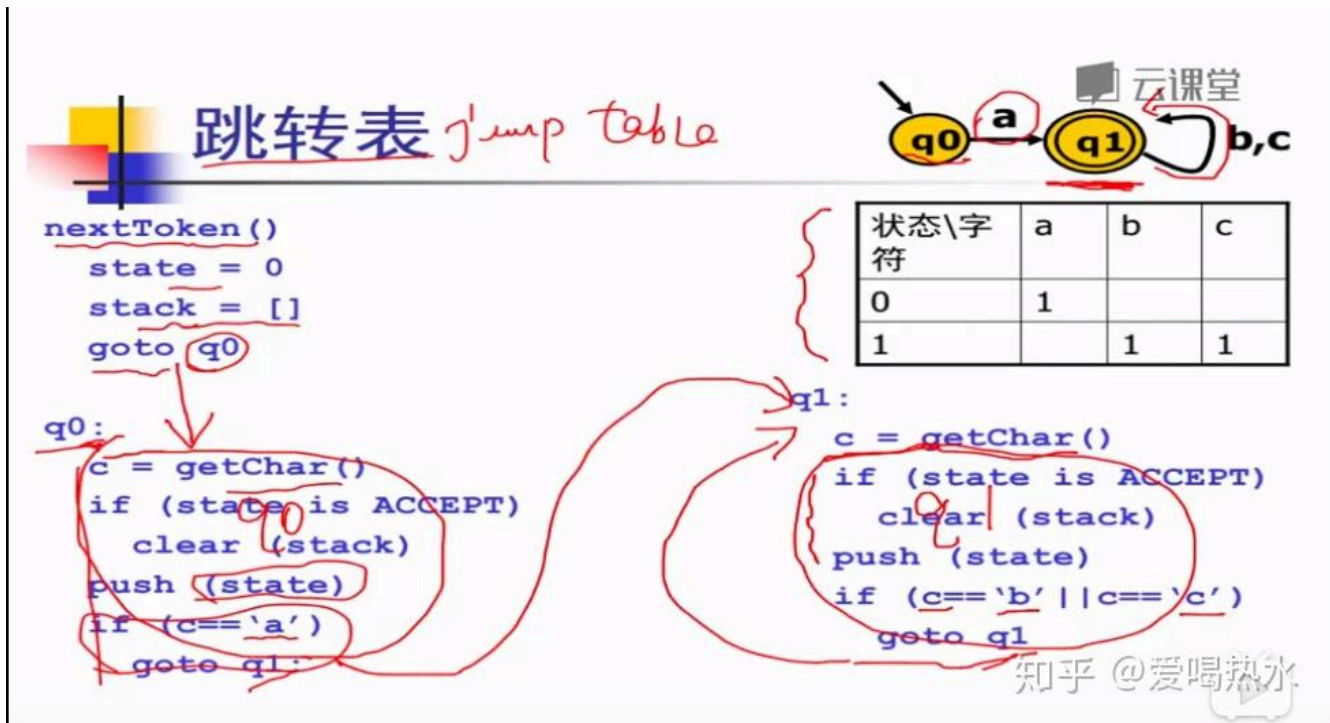 云课堂
跳转表 jump table
q0 a q1 b,c
nextToken()
state = 0
stack = []
goto q0
状态\字符 a b c
0 1
1 1 1
q0:
c = getChar()
if (state is ACCEPT)
clear (stack)
push (state)
if (c==‘a’)
goto q1:
q0
q1:
c = getChar()
if (state is ACCEPT)
clear (stack)
push (state)
if (c==‘b’||c==‘c’)
goto q1
q1
知乎 @爱喝热水